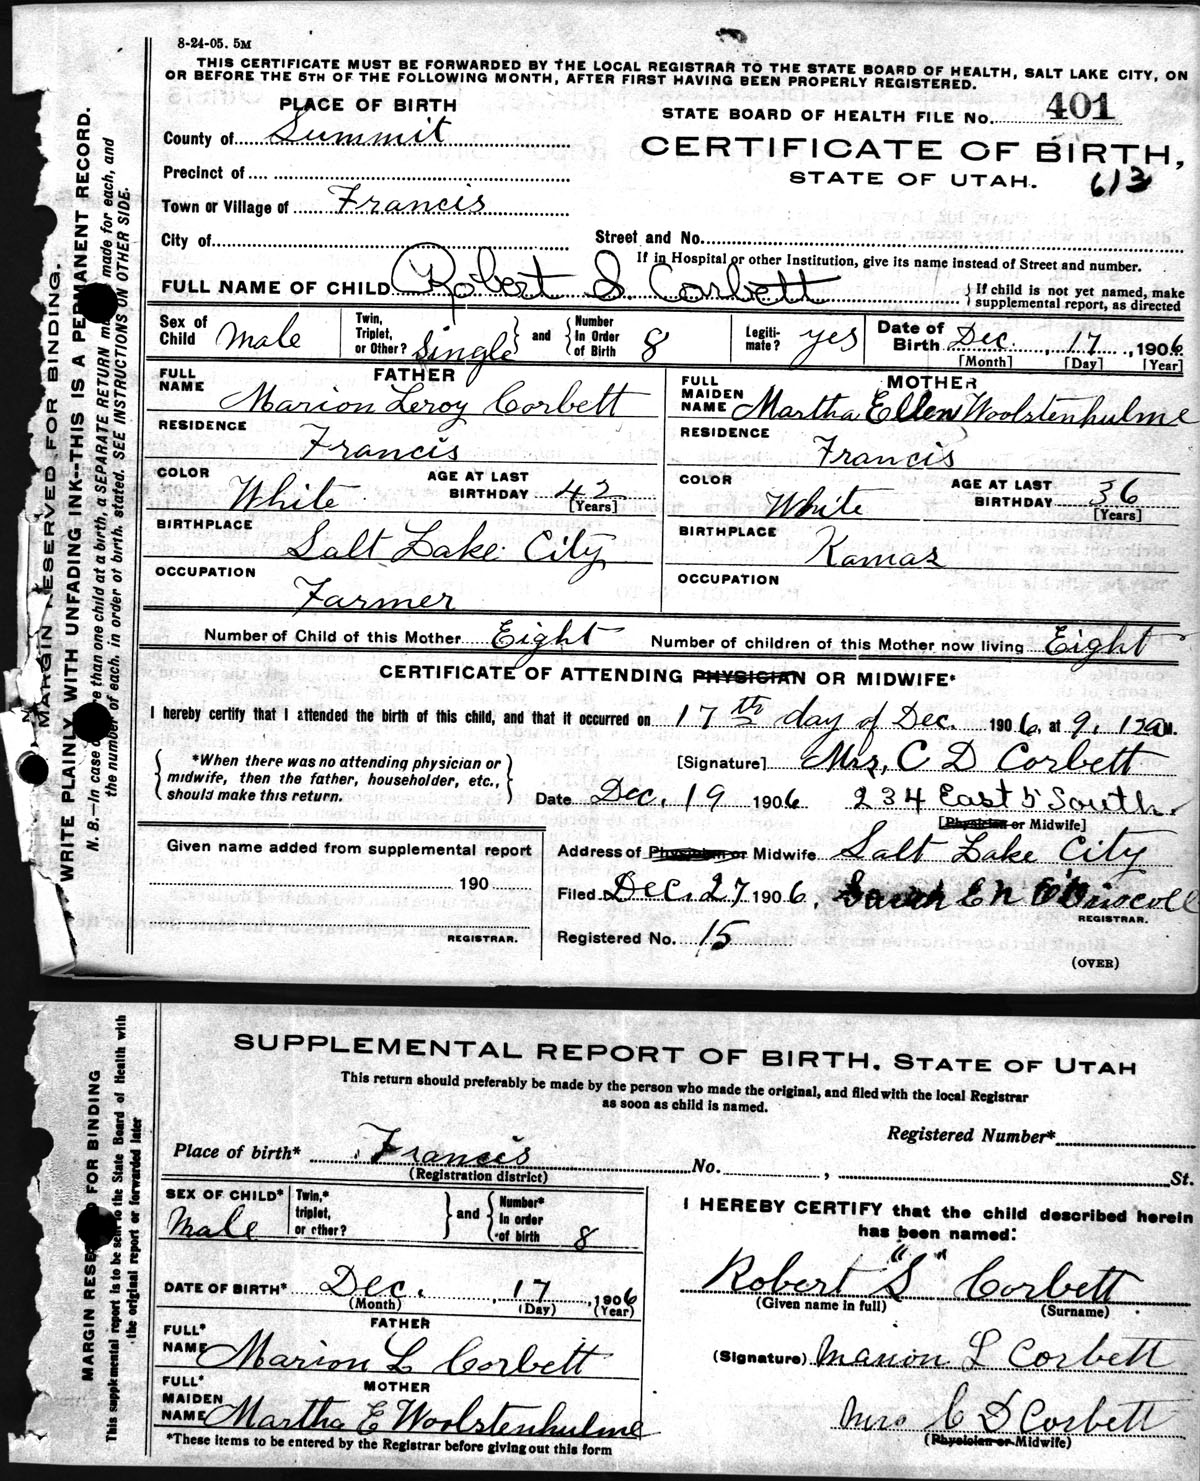 8-24-05. 5M
THIS CERTIFICATE MUST BE FORWARDED BY THE LOCAL REGISTRAR TO THE STATE BOARD OF HEALTH, SALT LAKE CITY, ON
OR BEFORE THE 5TH OF THE FOLLOWING MONTH, AFTER FIRST HAVING BEEN PROPERLY REGISTERED.
PLACE OF BIRTH
STATE BOARD OF HEALTH FILE No. 401
County of Summit
CERTIFICATE OF BIRTH,
Precinct of
STATE OF UTAH. 613
Town or Village of Francis
City of
Street and No.
If in Hospital or other Institution, give its name instead of Street and number.
FULL NAME OF CHILD Robert S. Corbett { If child is not yet named, make supplemental report, as directed
Sex of Child Male Twin, Triplet, or Other? Single } and { Number In Order of Birth 8 Legiti- mate? yes Date of Birth Dec. 17, 1906
[Month] [Day] [Year]
FATHER
FULL NAME Marion Leroy Corbett
RESIDENCE Francis
COLOR White AGE AT LAST BIRTHDAY 42
[Years]
BIRTHPLACE Salt Lake City
OCCUPATION Farmer
MOTHER
FULL MAIDEN NAME Martha Ellen Woolstenhulme
RESIDENCE Francis
COLOR White AGE AT LAST BIRTHDAY 36
[Years]
BIRTHPLACE Kamas
OCCUPATION
Number of Child of this Mother Eight Number of children of this Mother now living Eight
CERTIFICATE OF ATTENDING PHYSICIAN OR MIDWIFE*
I hereby certify that I attended the birth of this child, and that it occurred on 17th day of Dec. 1906, at 9.12 a M.
{ *When there was no attending physician or
midwife, then the father, householder, etc.,
should make this return. }
[Signature] Mrs. C D Corbett
Date Dec. 19 1906 234 East 5 South.
[Physician or Midwife]
Given name added from supplemental report
190
REGISTRAR.
Address of Physician or Midwife Salt Lake City
Filed Dec. 27 1906, Sarah E N O'Driscoll
REGISTRAR.
Registered No. 15
(OVER)
MARGIN RESERVED FOR BINDING.
WRITE PLAINLY WITH UNFADING INK--THIS IS A PERMANENT RECORD.
N. B.—In case of more than one child at a birth, a SEPARATE RETURN must be made for each, and
the number of each, in order of birth, stated. SEE INSTRUCTIONS ON OTHER SIDE.
SUPPLEMENTAL REPORT OF BIRTH. STATE OF UTAH
This return should preferably be made by the person who made the original, and filed with the local Registrar
as soon as child is named.
Registered Number*
Place of birth* Francis No. , St.
(Registration district)
SEX OF CHILD* Male Twin,* triplet, or other? } and { Number* in order of birth 8
DATE OF BIRTH* Dec. 17, 1906
(Month) (Day) (Year)
FATHER
FULL* NAME Marion L Corbett
MOTHER
FULL* MAIDEN NAME Martha E Woolstenhulme
*These items to be entered by the Registrar before giving out this form
I HEREBY CERTIFY that the child described herein
has been named:
Robert "S" Corbett
(Given name in full) (Surname)
(Signature) Marion L Corbett
Mrs C D Corbett
(Physician or Midwife)
MARGIN RESERVED FOR BINDING
This supplemental report is to be sent to the State Board of Health with
the original report or forwarded later